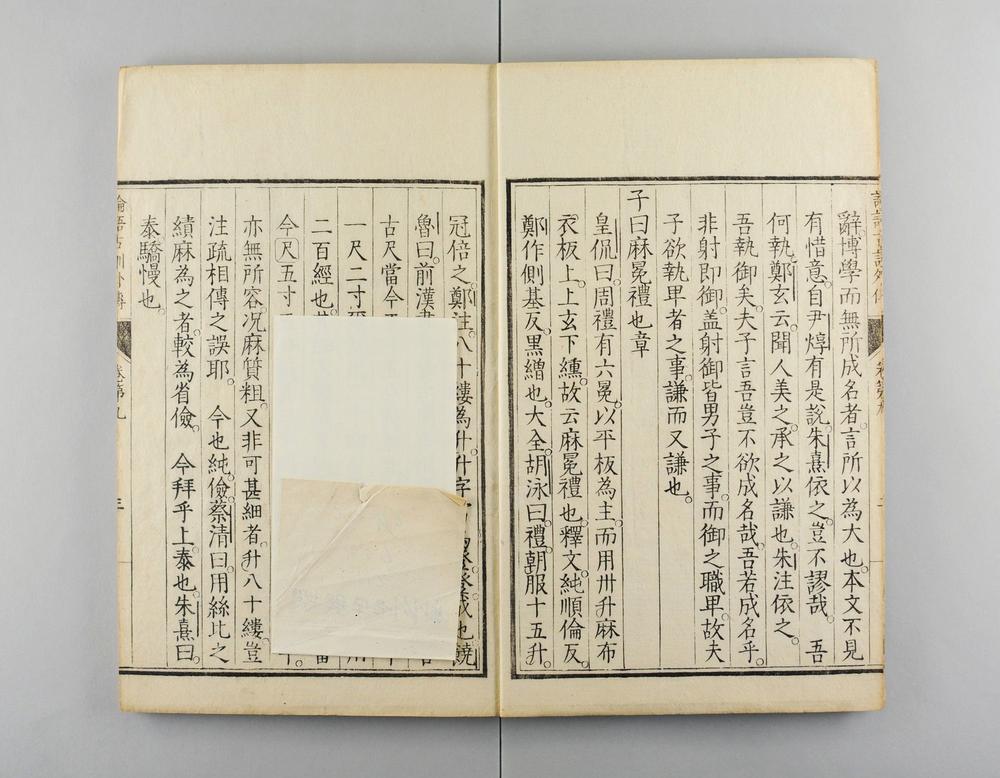 辭博學而無所成名者。言所以為大也。本文不見
有惜意。自尹焞有是說。朱熹依之。豈不謬哉。 吾
何執。鄭玄云。聞人美之。承之以謙也。朱注依之。
吾執御矣。夫子言吾豈不欲成名哉。吾若成名乎。
非射即御。蓋射御皆男子之事。而御之職卑。故夫
子欲執卑者之事。謙而又謙也。
子曰麻冕禮也章
皇侃曰。周禮有六冕。以平板為主。而用卅升麻布
衣板上。上玄下纁。故云麻冕禮也。釋文。純順倫反。
鄭作側基反。黑繒也。大全。胡泳曰。禮。朝服十五升。
冠倍之。鄭注。八十縷為升。升字
成也。饒
魯曰。前漢
古尺當今
一尺二寸
二百經也。
今尺五寸
亦無所容。况麻質粗。又非可甚細者。升八十縷。豈
注疏相傳之誤耶。 今也純。儉。蔡清曰。用絲比之
績麻為之者。較為省儉。 今拜乎上。泰也。朱熹曰。
泰驕慢也。
卷第九
三